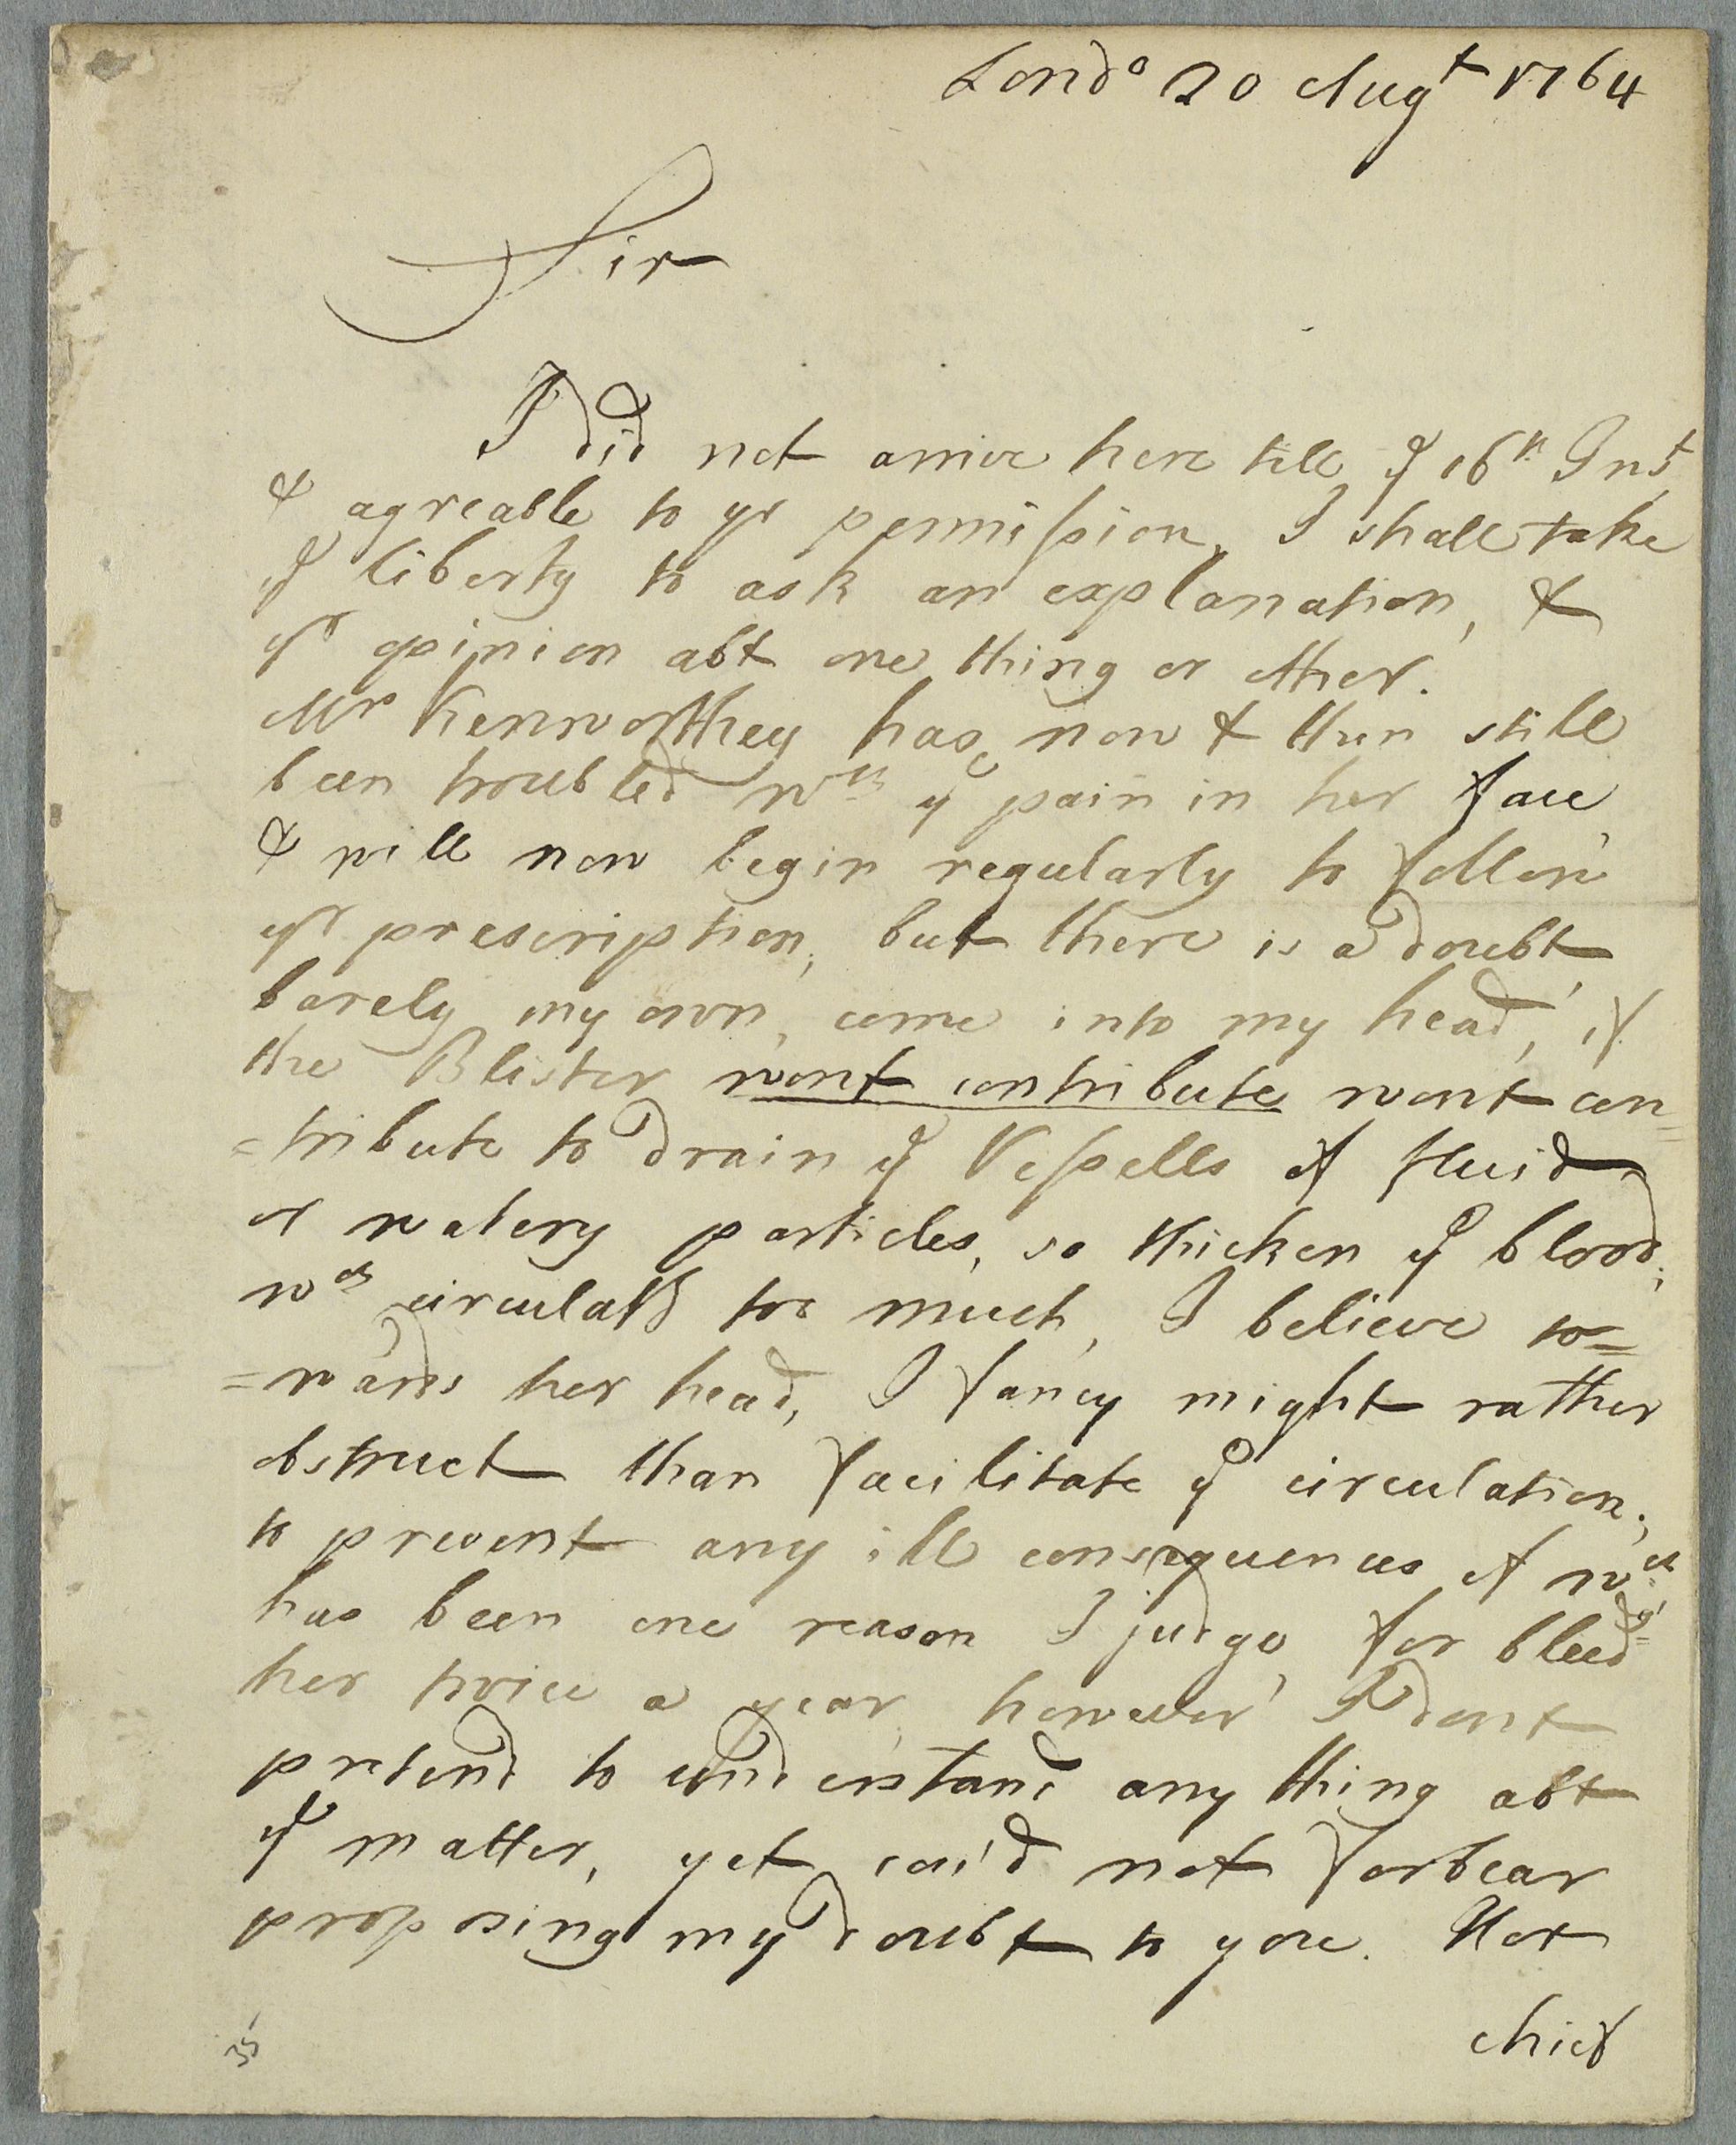 Londo 20 Augt 1764
Sir
I did not arrive here till ye 16th Inst
& agreable to yr permission, I shall take
ye liberty to ask an explanation, &
yr opinion abt one thing or other.
Mrs Kenworthey has now & then still
been troubled wth ye pain in her face,
& will now begin regularly to follow
yr prescription; but there is a doubt
barely my own, come into my head, if
the Blister wont contribute wont con=
=tribute to drain ye Vessells of fluid
or watery particles, so thicken ye blood;
wch circulats too much, I believe to=
=wards her head, I fancy might rather
obstruct than facilitate ye circulation;
to prevent any ill consequences of wch
has been one reason I judge, for bleedg
her twice a year, however I dont
pretend to understand any thing abt
ye matter, yet cou'd not forbear
proposing my doubt to you. Her
chief
35